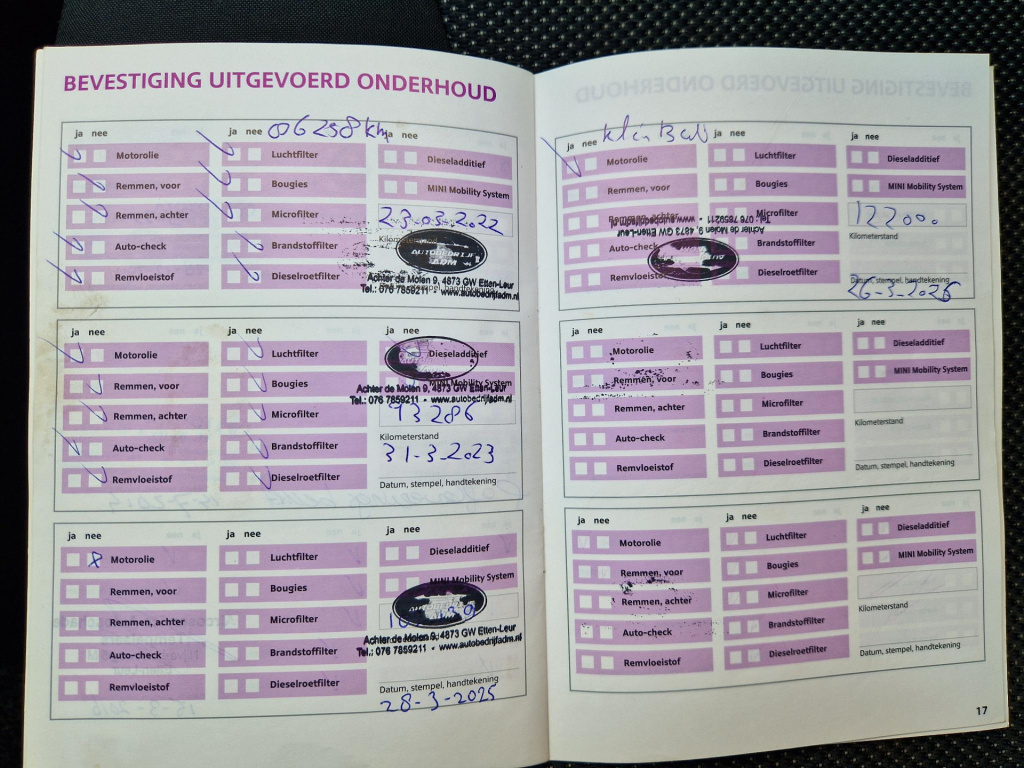 BEVESTIGING UITGEVOERD ONDERHOUD
ja nee
Motorolie
Remmen, voor
Remmen, achter
Auto-check
Remvloeistof
ja nee
Luchtfilter
Bougies
Microfilter
Brandstoffilter
Dieselroetfilter
ja nee
Dieseladditief
MINI Mobility System
23-03-2022
AUTOBEDRIJF
ADM
Achter de Molen 9, 4873 GW Etten-Leur
Tel.: 076 7859211 - www.autobedrijfadm.nl
ja nee
Motorolie
Remmen, voor
Remmen, achter
Auto-check
Remvloeistof
ja nee
Luchtfilter
Bougies
Microfilter
Brandstoffilter
Dieselroetfilter
ja nee
Dieseladditief
MINI Mobility System
Achter de Molen 9, 4873 GW Etten-Leur
Tel.: 076 7859211 - www.autobedrijfadm.nl
93286
Kilometerstand
31-3-2023
Datum, stempel, handtekening
ja nee
Motorolie
Remmen, voor
Remmen, achter
Auto-check
Remvloeistof
ja nee
Luchtfilter
Bougies
Microfilter
Brandstoffilter
Dieselroetfilter
ja nee
Dieseladditief
MINI Mobility System
AUTOBEDRIJF
Achter de Molen 9, 4873 GW Etten-Leur
Tel.: 076 7859211 - www.autobedrijfadm.nl
Datum, stempel, handtekening
28-3-2025
ja nee
Motorolie
Remmen, voor
Remmen, achter
Auto-check
Remvloeistof
Achter de Molen 9, 4873 GW Etten-Leur
Tel.: 076 7859211 - www.autobedrijfadm.nl
ja nee
Luchtfilter
Bougies
Microfilter
Brandstoffilter
Dieselroetfilter
ja nee
Dieseladditief
MINI Mobility System
122000
Kilometerstand
Datum, stempel, handtekening
26-3-2026
ja nee
Motorolie
Remmen, voor
Remmen, achter
Auto-check
Remvloeistof
ja nee
Luchtfilter
Bougies
Microfilter
Brandstoffilter
Dieselroetfilter
ja nee
Dieseladditief
MINI Mobility System
Kilometerstand
Datum, stempel, handtekening
ja nee
Motorolie
Remmen, voor
Remmen, achter
Auto-check
Remvloeistof
ja nee
Luchtfilter
Bougies
Microfilter
Brandstoffilter
Dieselroetfilter
ja nee
Dieseladditief
MINI Mobility System
Kilometerstand
Datum, stempel, handtekening
17